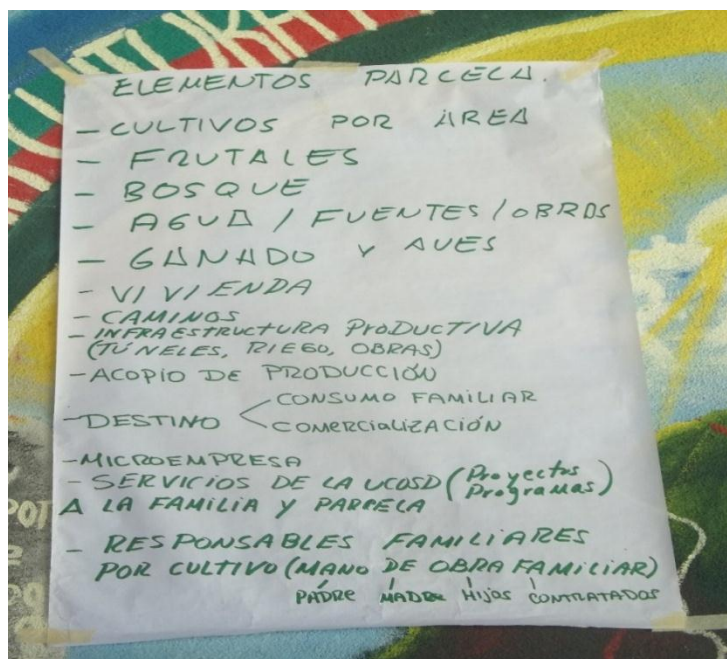 ELEMENTOS PARCELA.
- CULTIVOS POR ÁREA
- FRUTALES
- BOSQUE
- AGUA / FUENTES / OBRAS
- GANADO Y AVES
- VIVIENDA
- CAMINOS
- INFRAESTRUCTURA PRODUCTIVA
(TÚNELES, RIEGO, OBRAS)
- ACOPIO DE PRODUCCIÓN
- DESTINO < CONSUMO FAMILIAR
COMERCIALIZACIÓN
- MICROEMPRESA
- SERVICIOS DE LA UCOSD (Proyectos Programas)
A LA FAMILIA Y PARCELA
- RESPONSABLES FAMILIARES
POR CULTIVO (MANO DE OBRA FAMILIAR)
PADRE MADRE HIJOS CONTRATADOS